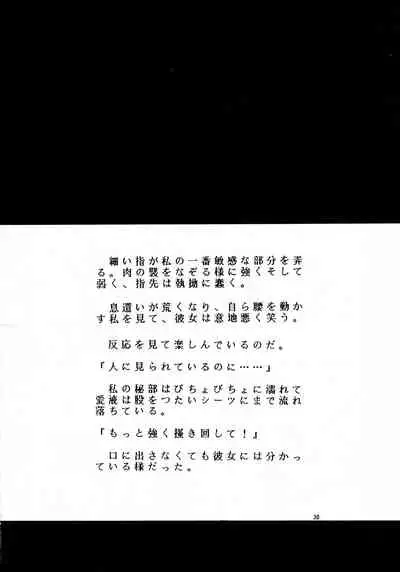 細い指が私の一番敏感な部分を弄
る。肉の襞をなぞる様に強くそして
弱く、指先は執拗に蠢く。
息遣いが荒くなり、自ら腰を動か
す私を見て、彼女は意地悪く笑う。
反応を見て楽しんでいるのだ。
『人に見られているのに……』
私の秘部はびちょびちょに濡れて
愛液は股をつたいシーツにまで流れ
落ちている。
『もっと強く掻き回して！』
口に出さなくても彼女には分かっ
ている様だった。
30